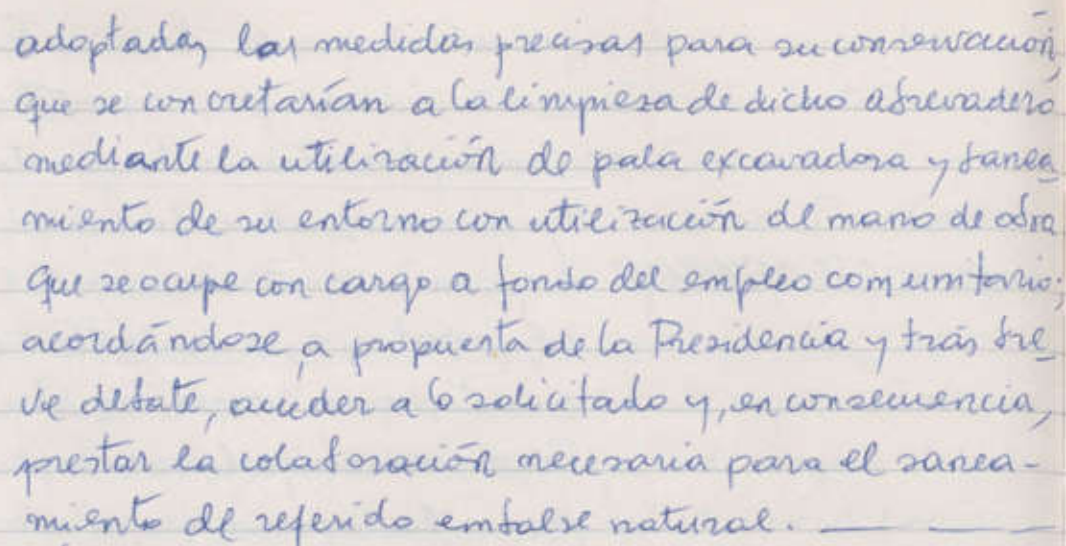 adoptadas las medidas precisas para su conservación,
que se concretarían a la limpieza de dicho abrevadero
mediante la utilización de pala excavadora y sanea
miento de su entorno con utilización de mano de obra
que se ocupe con cargo a fondo del empleo comunitario;
acordándose, a propuesta de la Presidencia y trás bre
ve debate, acceder a lo solicitado y, en consecuencia,
prestar la colaboración necesaria para el sanea-
miento de referido embalse natural. — —